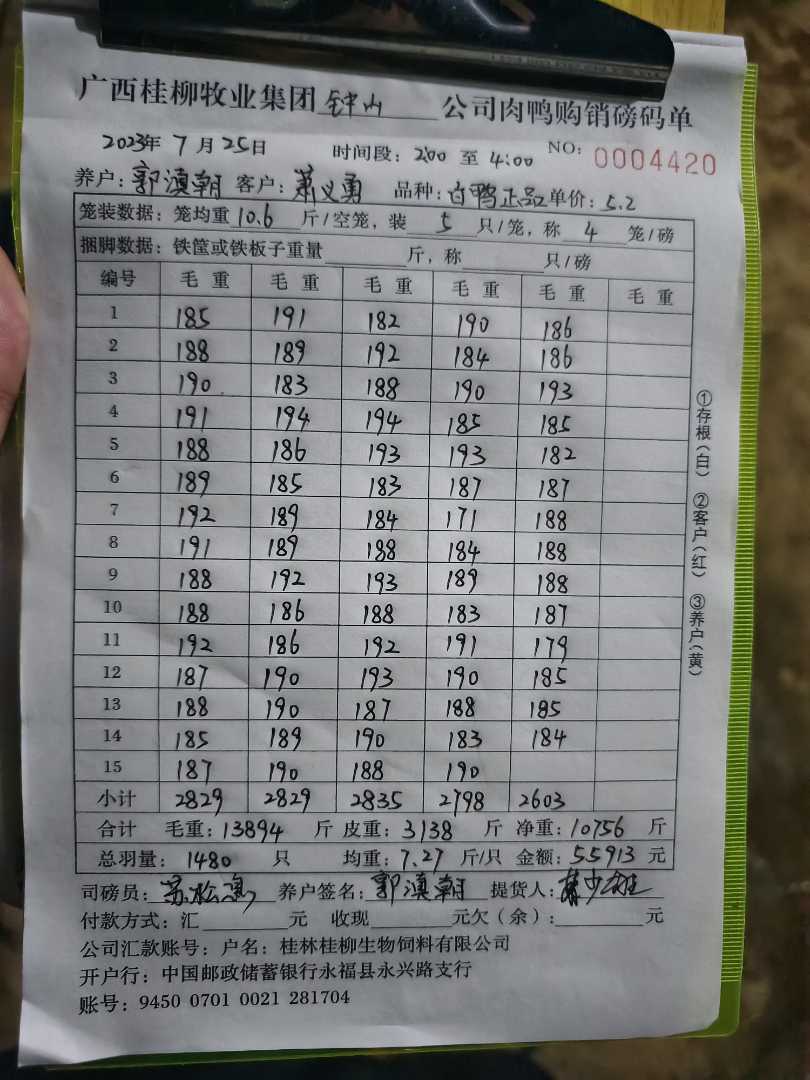 广西桂柳牧业集团 钟山 公司肉鸭购销磅码单
2023年 7月25日 时间段：2:00 至 4:00 NO: 0004420
养户：郭滇朝 客户：萧义勇 品种：白鸭正品 单价：5.2
笼装数据：笼均重 10.6 斤/空笼，装 5 只/笼，称 4 笼/磅
捆脚数据：铁筐或铁板子重量 斤，称 只/磅
编号 毛重 毛重 毛重 毛重 毛重 毛重
1 185 191 182 190 186
2 188 189 192 184 186
3 190 183 188 190 193
4 191 194 194 185 185
5 188 186 193 193 182
6 189 185 183 187 187
7 192 189 184 171 188
8 191 189 188 184 188
9 188 192 193 189 188
10 188 186 188 183 187
11 192 186 192 191 179
12 187 190 193 190 185
13 188 190 187 188 185
14 185 189 190 183 184
15 187 190 188 190
小计 2829 2829 2835 2798 2603
合计 毛重：13894 斤 皮重：3138 斤 净重：10756 斤
总羽量：1480 只 均重：7.27 斤/只 金额：55913 元
司磅员： 养户签名：郭滇朝 提货人：
付款方式：汇 元 收现 元欠（余）： 元
公司汇款账号：户名：桂林桂柳生物饲料有限公司
开户行：中国邮政储蓄银行永福县永兴路支行
账号：9450 0701 0021 281704
①存根（白） ②客户（红） ③养户（黄）